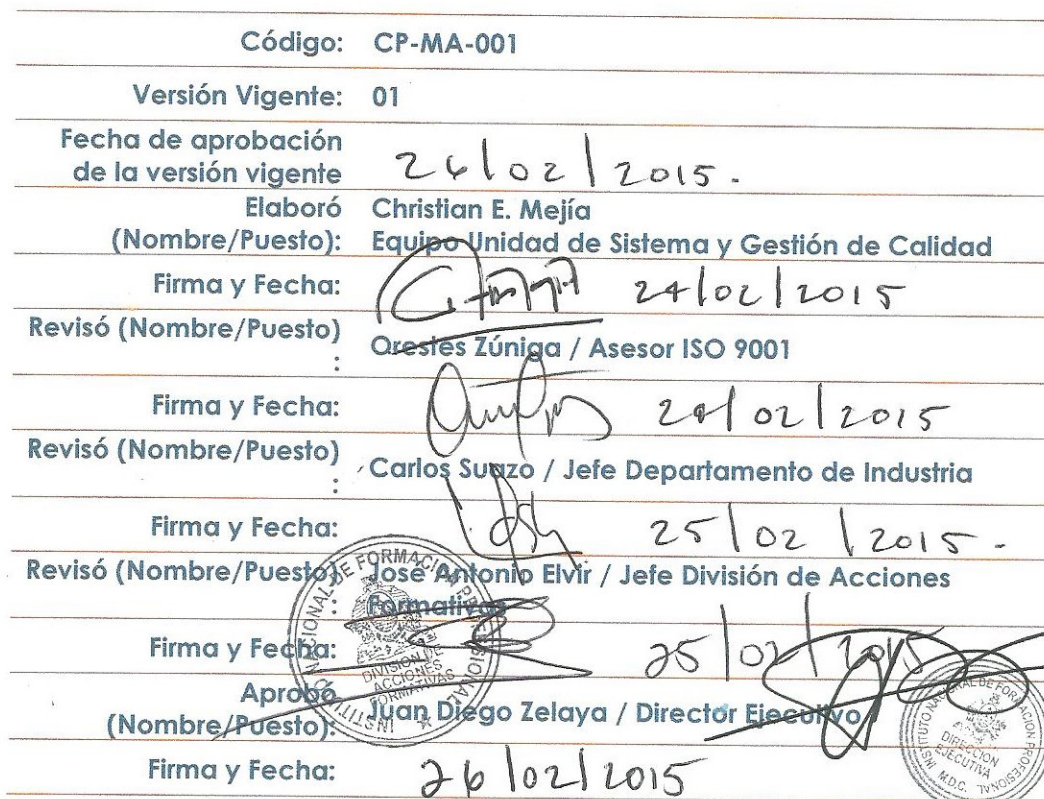 Código: CP-MA-001
Versión Vigente: 01
Fecha de aprobación
de la versión vigente 26/02/2015.
Elaboró Christian E. Mejía
(Nombre/Puesto): Equipo Unidad de Sistema y Gestión de Calidad
Firma y Fecha: 24/02/2015
Revisó (Nombre/Puesto)
: Orestes Zúniga / Asesor ISO 9001
Firma y Fecha: 24/02/2015
Revisó (Nombre/Puesto)
: Carlos Suazo / Jefe Departamento de Industria
Firma y Fecha: 25/02/2015.
Revisó (Nombre/Puesto) José Antonio Elvir / Jefe División de Acciones
: Formativas
Firma y Fecha: 25/02/2015
Aprobó
(Nombre/Puesto): Juan Diego Zelaya / Director Ejecutivo
Firma y Fecha: 26/02/2015
INSTITUTO NACIONAL DE FORMACIÓN PROFESIONAL
DIVISIÓN DE
ACCIONES
FORMATIVAS
INSTITUTO NACIONAL DE FORMACION PROFESIONAL
DIRECCION
EJECUTIVA
M.D.C.